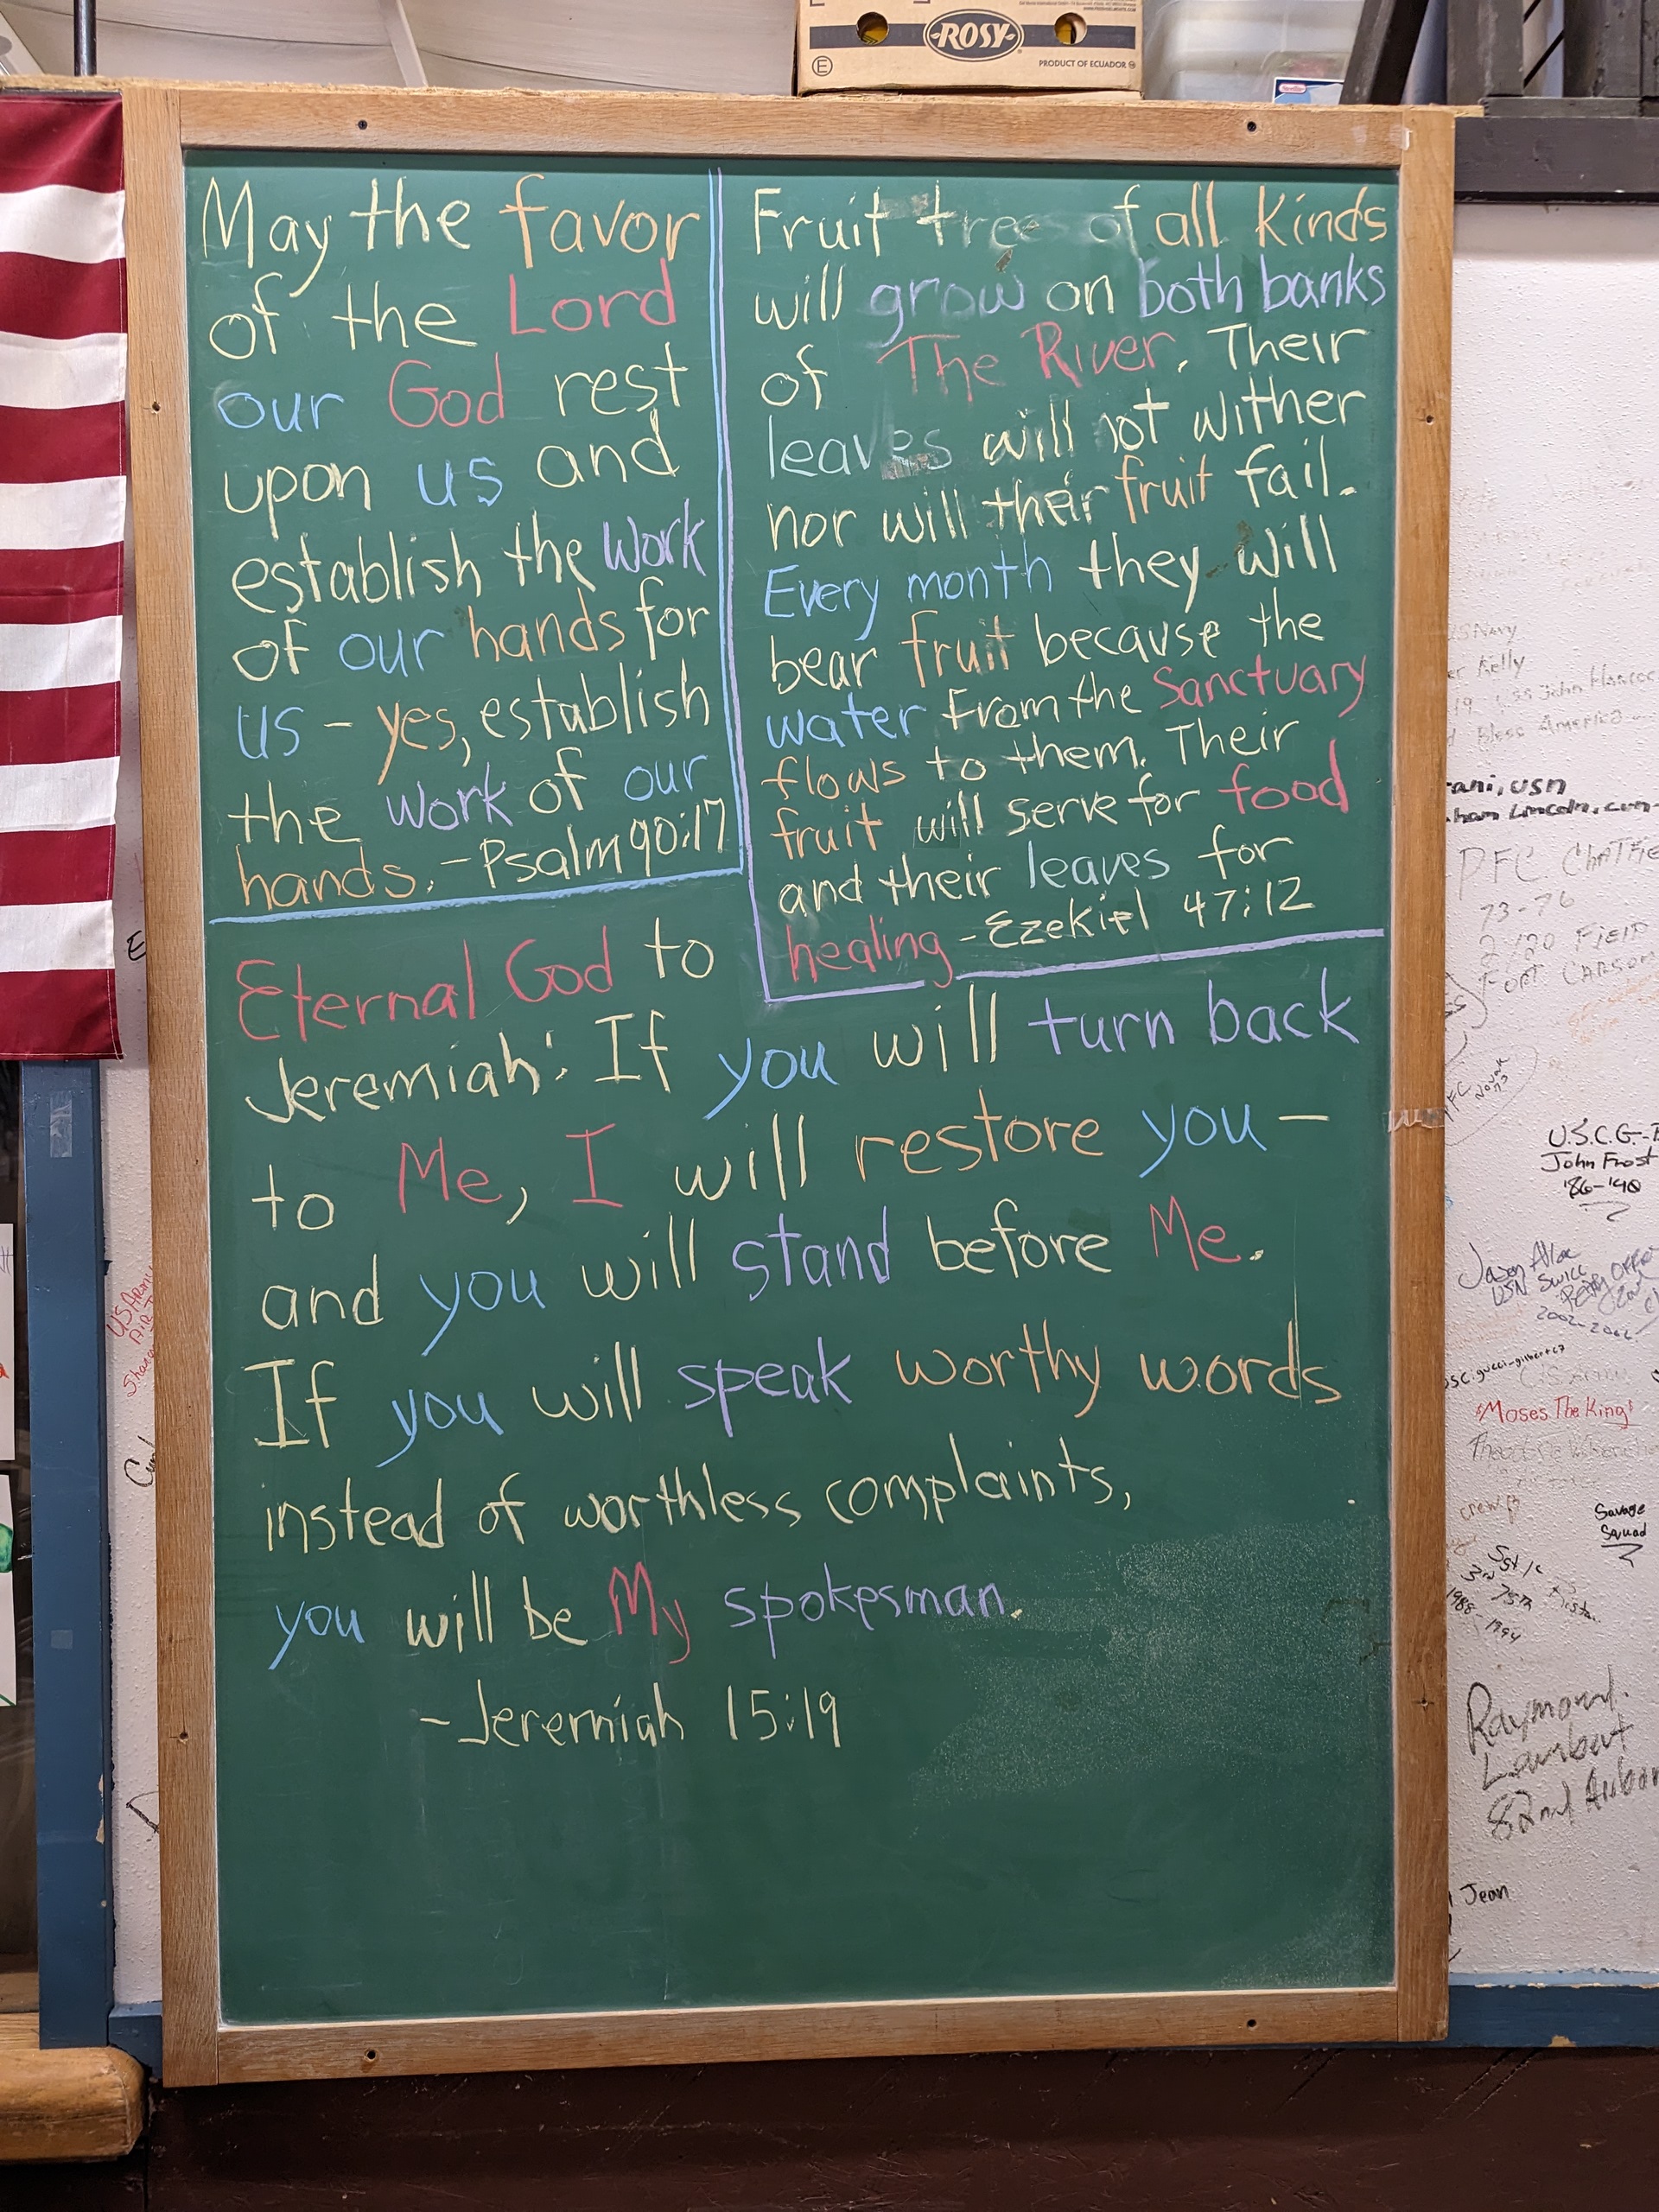 ROSY
PRODUCT OF ECUADOR
May the favor
of the Lord
our God rest
upon us and
establish the work
of our hands for
us – yes, establish
the work of our
hands. – Psalm 90:17
Fruit tree of all kinds
will grow on both banks
of The River. Their
leaves will not wither
nor will their fruit fail.
Every month they will
bear fruit because the
water from the Sanctuary
flows to them. Their
fruit will serve for food
and their leaves for
healing – Ezekiel 47:12
Eternal God to
Jeremiah: If you will turn back
to Me, I will restore you –
and you will stand before Me.
If you will speak worthy words
instead of worthless complaints,
you will be My spokesman.
– Jeremiah 15:19
US ARMY
Kelly
John Hancoc
Bless America
ani, USN
ham Lincoln, cvn-
PFC
73-76
FORT CARSON
PFC
U.S.C.G.
John Frost
'86-'90
Jason
USN
2002-2006
"Moses The King"
Savage
Squad
75th
1988-1994
Raymond
Lambert
82nd
Jean